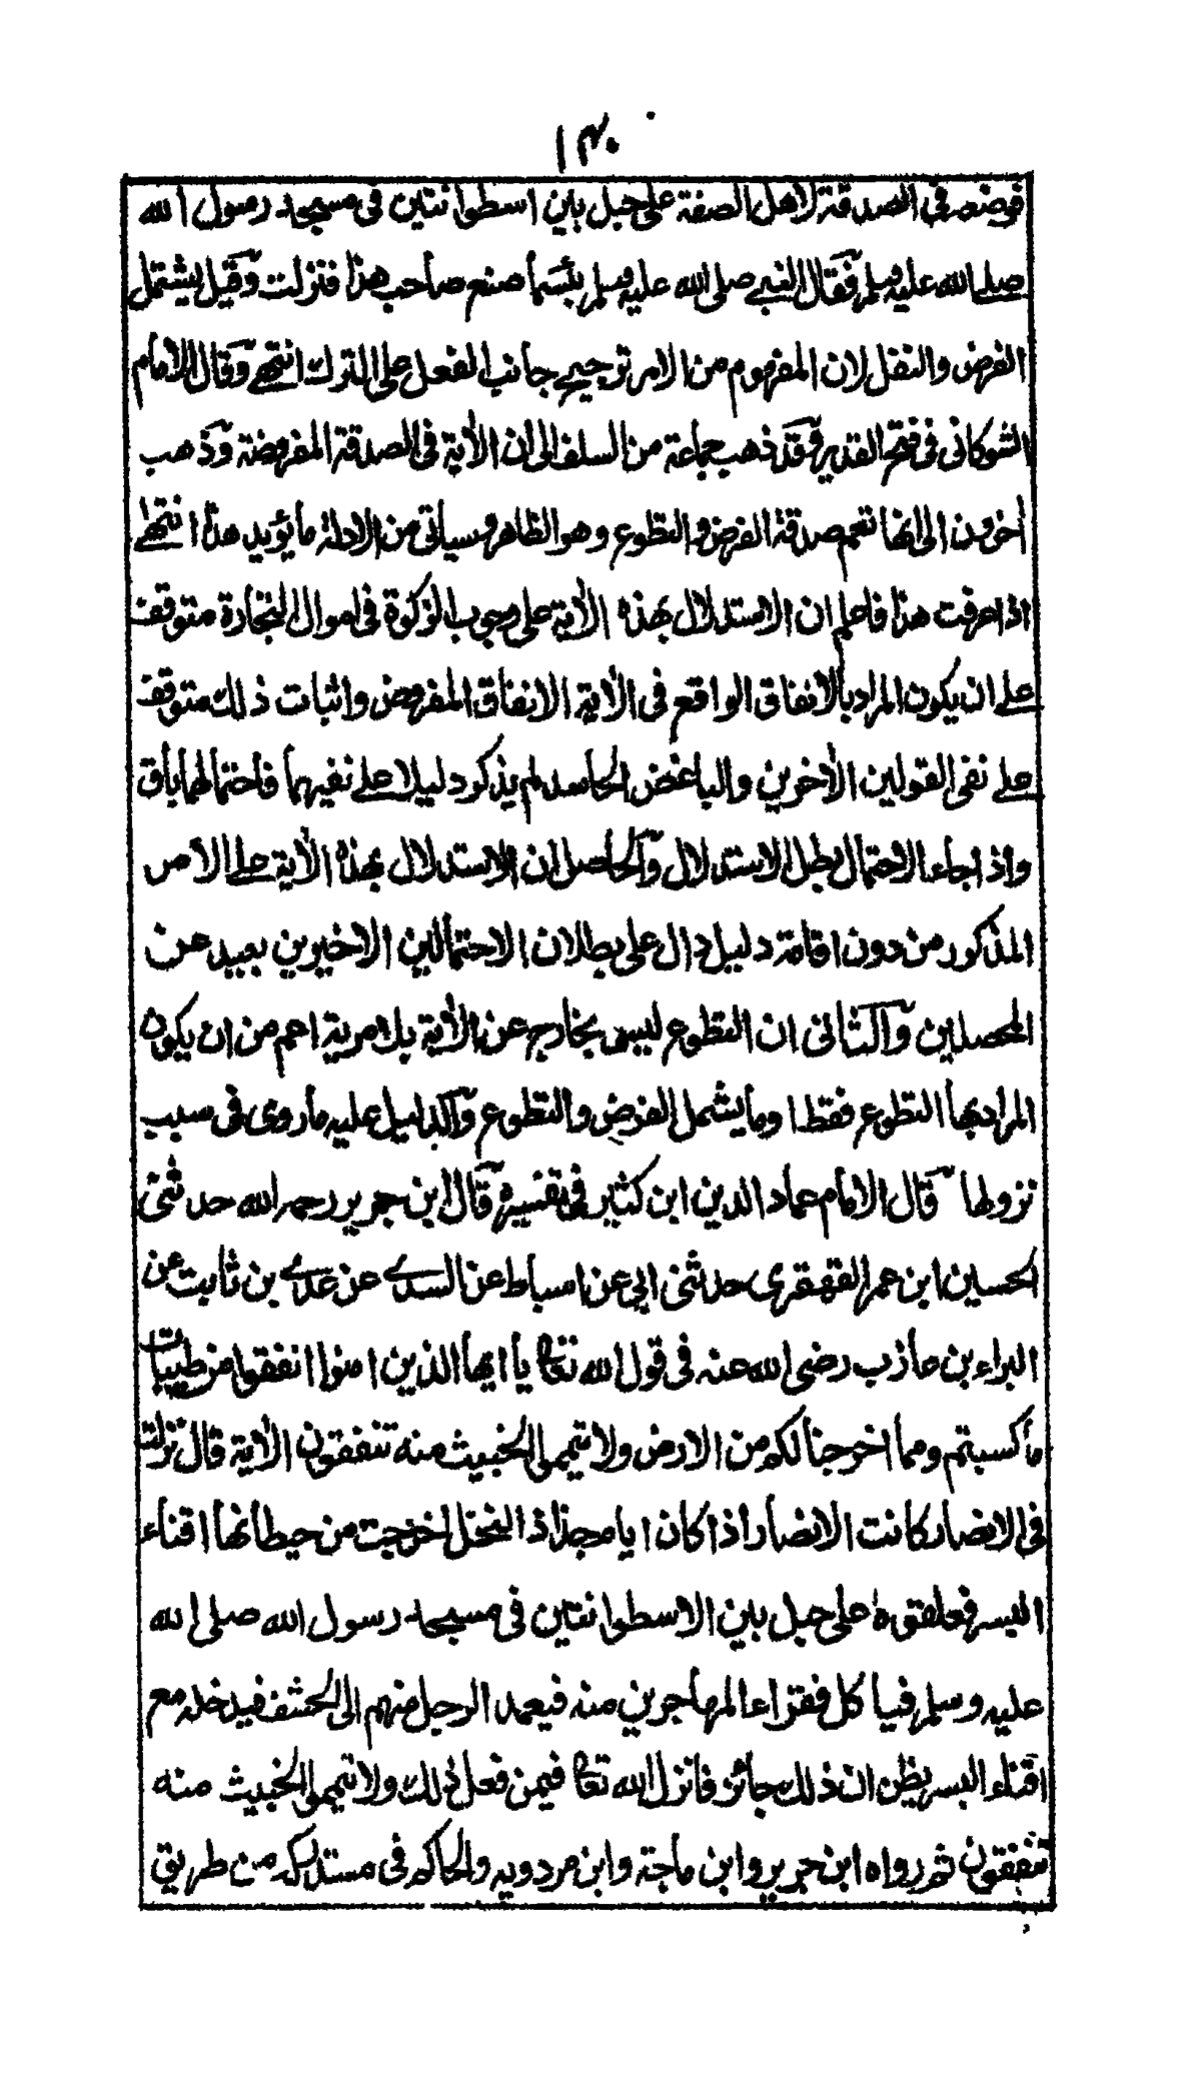 ۱۴۰
فوضعه فى الصدقة لاهل الصفة على حبل بين اسطوانتين فى مسجد رسول الله
صلى الله عليه وسلم فقال النبى صلى الله عليه وسلم بئسما صنع صاحب هذا فنزلت وقيل يشتمل
الفرض والنفل لان المفهوم من الامر ترجيح جانب الفعل على الترك انتهى وقال الامام
الشوكانى فى فتح القدير وقد ذهب جماعة من السلف الى ان الأية فى الصدقة المفروضة وذهب
أخرون الى انها تعم صدقة الفرض والتطوع وهو الظاهر وسياتى من الادلة ما يؤيد هذا انتهى
اذا عرفت هذا فاعلم ان الاستدلال بهذه الأية على وجوب الزكوة فى اموال التجارة متوقف
على ان يكون المراد بالانفاق الواقع فى الأية الانفاق المفروض واثبات ذلك متوقف
على نفى القولين الأخرين والباغض الحاسد لم يذكر دليلا على نفيهما فاحتمالهما باق
واذا جاء الاحتمال بطل الاستدلال والحاصل ان الاستدلال بهذه الأية على الامر
المذكور من دون اقامة دليل دال على بطلان الاحتمالين الاخيرين بعيد عن
المحصلين والثانى ان التطوع ليس بخارج عن الأية بلا مرية اعم من ان يكون
المراد بها التطوع فقط او ما يشمل الفرض والتطوع والدليل عليه ما روى فى سبب
نزولها قال الامام عماد الدين ابن كثير فى تفسيره قال ابن جرير رحمه الله حدثنى
الحسين ابن عمر الفقهقرى حدثنى ابى عن اسباط عن السدى عن عدى بن ثابت عن
البراء بن عازب رضى الله عنه فى قول الله تعالى يا ايها الذين امنوا انفقوا من طيبات
ما كسبتم ومما اخرجنا لكم من الارض ولا تيمموا الخبيث منه تنفقون الأية قال نزلت
فى الانصار كانت الانصار اذا كان ايام جذاذ النخل اخرجت من حيطانها اقناء
البسر فعلقوه على حبل بين الاسطوانتين فى مسجد رسول الله صلى الله
عليه وسلم فياكل فقراء المهاجرين منه فيعمد الرجل منهم الى الحشف فيدخله مع
اقناء البسر يظن ان ذلك جائز فانزل الله تعالى فيمن فعل ذلك ولا تيمموا الخبيث منه
تنفقون ثم رواه ابن جرير وابن ماجة وابن مردويه والحاكم فى مستدركه من طريق